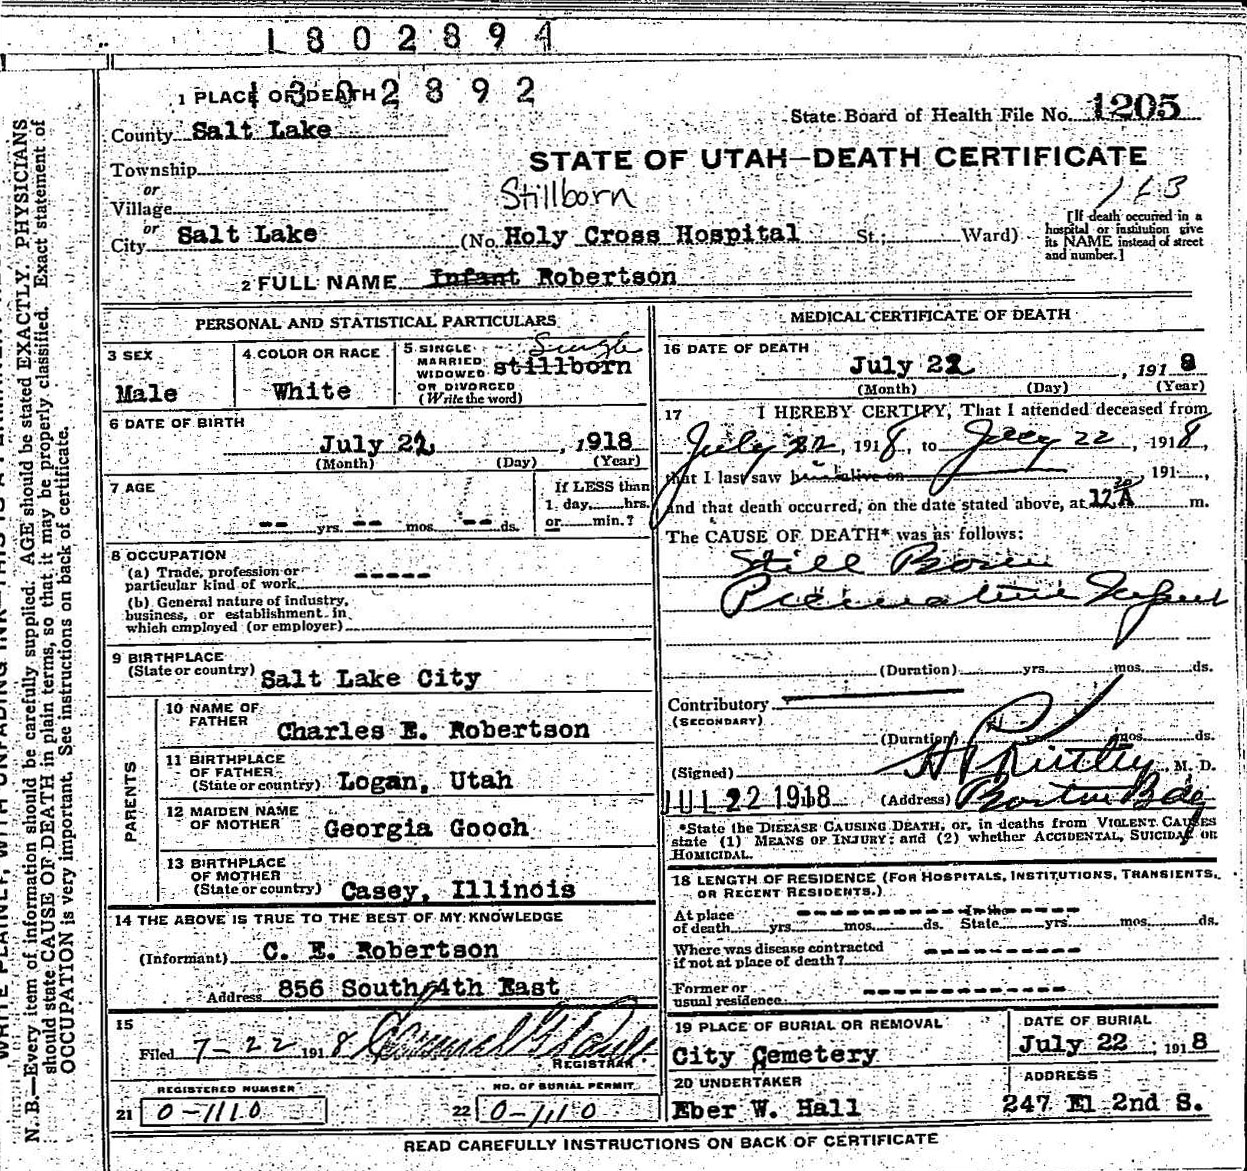 1 8 0 2 8 9 4
1 3 0 2 8 9 2
1 PLACE OF DEATH
State Board of Health File No. 1205
County Salt Lake
STATE OF UTAH—DEATH CERTIFICATE
Township
or
Village
Stillborn
or
City Salt Lake (No. Holy Cross Hospital St.; Ward)
[If death occurred in a
hospital or institution give
its NAME instead of street
and number.]
2 FULL NAME Infant Robertson
PERSONAL AND STATISTICAL PARTICULARS
3 SEX
Male
4 COLOR OR RACE
White
5 SINGLE
MARRIED
WIDOWED
OR DIVORCED
(Write the word)
Single
stillborn
6 DATE OF BIRTH
July 22, 1918
(Month) (Day) (Year)
7 AGE
-- yrs. -- mos. -- ds.
If LESS than
1 day, hrs.
or min.?
8 OCCUPATION
(a) Trade, profession or
particular kind of work -----
(b) General nature of industry,
business, or establishment in
which employed (or employer)
9 BIRTHPLACE
(State or country) Salt Lake City
PARENTS
10 NAME OF
FATHER
Charles E. Robertson
11 BIRTHPLACE
OF FATHER
(State or country) Logan, Utah
12 MAIDEN NAME
OF MOTHER
Georgia Gooch
13 BIRTHPLACE
OF MOTHER
(State or country) Casey, Illinois
14 THE ABOVE IS TRUE TO THE BEST OF MY KNOWLEDGE
(Informant) C. E. Robertson
Address 856 South 4th East
15
Filed 7-22 1918
REGISTRAR
REGISTERED NUMBER
21 0-1110
NO. OF BURIAL PERMIT
22 0-1110
MEDICAL CERTIFICATE OF DEATH
16 DATE OF DEATH
July 22, 1918
(Month) (Day) (Year)
17 I HEREBY CERTIFY, That I attended deceased from
July 22, 1918, to July 22, 1918,
that I last saw h alive on , 191 ,
and that death occurred, on the date stated above, at 12 30 A m.
The CAUSE OF DEATH* was as follows:
Still Born
Premature Infant
(Duration) yrs. mos. ds.
Contributory
(SECONDARY)
(Duration) yrs. mos. ds.
(Signed) M. D.
JUL 22 1918 (Address) Boston Bdg
*State the DISEASE CAUSING DEATH, or, in deaths from VIOLENT CAUSES
state (1) MEANS OF INJURY; and (2) whether ACCIDENTAL, SUICIDAL OR
HOMICIDAL.
18 LENGTH OF RESIDENCE (FOR HOSPITALS, INSTITUTIONS, TRANSIENTS,
OR RECENT RESIDENTS.)
At place In the
of death yrs. mos. ds. State yrs. mos. ds.
Where was disease contracted
if not at place of death?
Former or
usual residence
19 PLACE OF BURIAL OR REMOVAL
City Cemetery
DATE OF BURIAL
July 22, 1918
20 UNDERTAKER
Eber W. Hall
ADDRESS
247 E 2nd S.
READ CAREFULLY INSTRUCTIONS ON BACK OF CERTIFICATE
N. B.—Every item of information should be carefully supplied. AGE should be stated EXACTLY, PHYSICIANS
should state CAUSE OF DEATH in plain terms, so that it may be properly classified. Exact statement of
OCCUPATION is very important. See instructions on back of certificate.